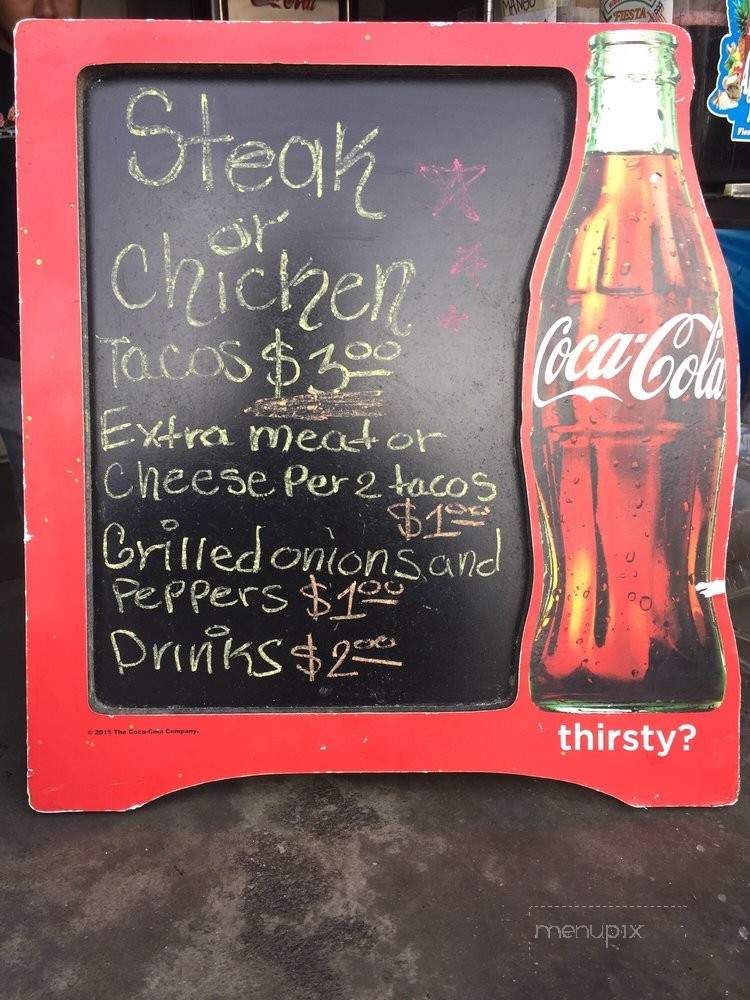 Cola
MANGO
FIESTA
Steak
or
Chicken
Tacos $3.00
Extra meat or
Cheese Per 2 tacos
$1.00
Grilled onions and
Peppers $1.00
Drinks $2.00
Coca-Cola
© 2011 The Coca-Cola Company.
thirsty?
menupix